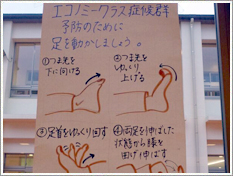 エコノミークラス症候群
予防のために
足を動かしましょう。
①つま先を
下に向ける
②つま先を
ゆっくり
上げる
③足首をゆっくり回す
④両足を伸ばした
状態から膝を
曲げ伸ばす